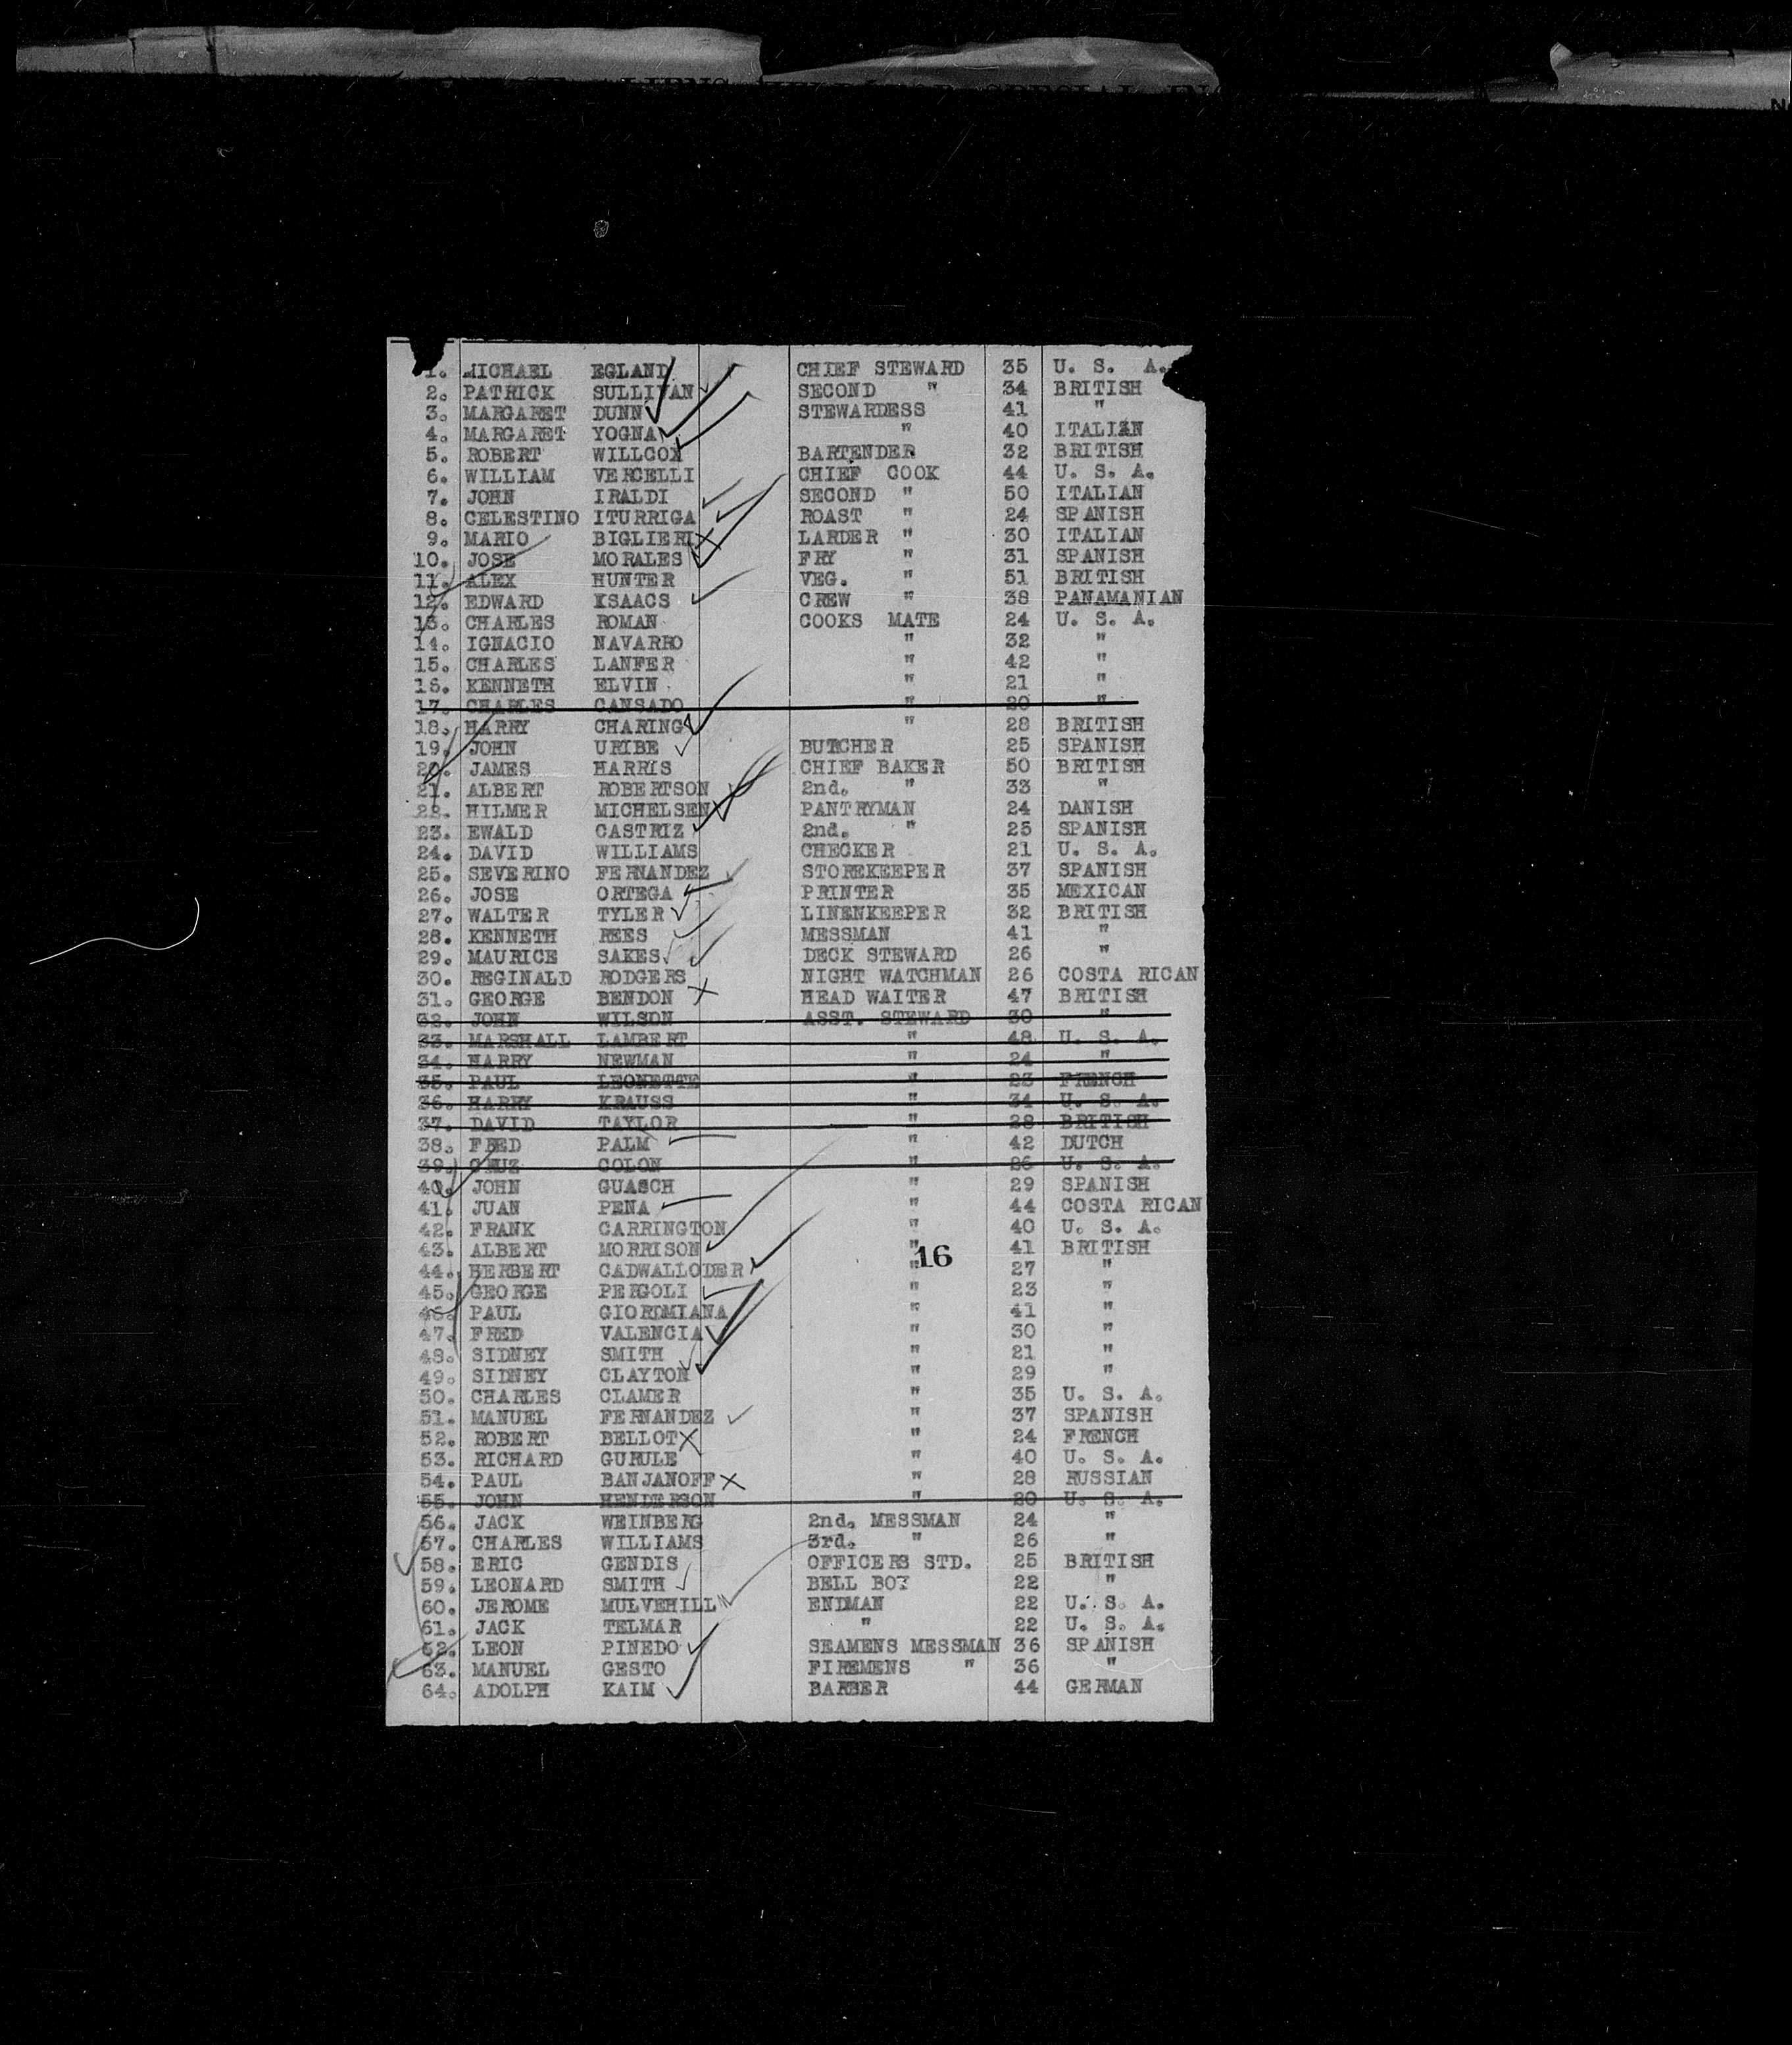 1. MICHAEL EGLAND CHIEF STEWARD 35 U. S. A.
2. PATRICK SULLIVAN SECOND " 34 BRITISH
3. MARGARET DUNN STEWARDESS 41 "
4. MARGARET YOGNA " 40 ITALIAN
5. ROBERT WILLCOX BARTENDER 32 BRITISH
6. WILLIAM VERCELLI CHIEF COOK 44 U. S. A.
7. JOHN IRALDI SECOND " 50 ITALIAN
8. CELESTINO ITURRIGA ROAST " 24 SPANISH
9. MARIO BIGLIERI LARDER " 30 ITALIAN
10. JOSE MORALES FRY " 31 SPANISH
11. ALEX HUNTER VEG. " 51 BRITISH
12. EDWARD KSAACS CREW " 38 PANAMANIAN
13. CHARLES ROMAN COOKS MATE 24 U. S. A.
14. IGNACIO NAVARRO " 32 "
15. CHARLES LANFER " 42 "
16. KENNETH ELVIN " 21 "
17. CHARLES CANSADO " 20 "
18. HARRY CHARING " 28 BRITISH
19. JOHN URIBE BUTCHER 25 SPANISH
20. JAMES HARRIS CHIEF BAKER 50 BRITISH
21. ALBERT ROBERTSON 2nd. " 33 "
22. HILMER MICHELSEN PANTRYMAN 24 DANISH
23. EWALD CASTRIZ 2nd. " 25 SPANISH
24. DAVID WILLIAMS CHECKER 21 U. S. A.
25. SEVERINO FERNANDEZ STOREKEEPER 37 SPANISH
26. JOSE ORTEGA PRINTER 35 MEXICAN
27. WALTER TYLER LINENKEEPER 32 BRITISH
28. KENNETH REES MESSMAN 41 "
29. MAURICE SAKES DECK STEWARD 26 "
30. REGINALD RODGERS NIGHT WATCHMAN 26 COSTA RICAN
31. GEORGE BENDON HEAD WAITER 47 BRITISH
32. JOHN WILSON ASST. STEWARD 30 "
33. MARSHALL LAMBERT " 48 U. S. A.
34. HARRY NEWMAN " 24 "
35. PAUL LEONETTE " 23 FRENCH
36. HARRY KRAUSS " 34 U. S. A.
37. DAVID TAYLOR " 28 BRITISH
38. FRED PALM " 42 DUTCH
39. CRUZ COLON " 26 U. S. A.
40. JOHN GUASCH " 29 SPANISH
41. JUAN PENA " 44 COSTA RICAN
42. FRANK CARRINGTON " 40 U. S. A.
43. ALBERT MORRISON " 41 BRITISH
16
44. HERBERT CADWALLODER " 27 "
45. GEORGE PERGOLI " 23 "
46. PAUL GIORDMIANA " 41 "
47. FRED VALENCIA " 30 "
48. SIDNEY SMITH " 21 "
49. SIDNEY CLAYTON " 29 "
50. CHARLES CLAMER " 35 U. S. A.
51. MANUEL FERNANDEZ " 37 SPANISH
52. ROBERT BELLOT " 24 FRENCH
53. RICHARD GURULE " 40 U. S. A.
54. PAUL BANJANOFF " 28 RUSSIAN
55. JOHN HENDERSON " 20 U. S. A.
56. JACK WEINBERG 2nd. MESSMAN 24 "
57. CHARLES WILLIAMS 3rd. " 26 "
58. ERIC GENDIS OFFICERS STD. 25 BRITISH
59. LEONARD SMITH BELL BOY 22 "
60. JEROME MULVEHILL ENDMAN 22 U. S. A.
61. JACK TELMAR " 22 U. S. A.
62. LEON PINEDO SEAMENS MESSMAN 36 SPANISH
63. MANUEL GESTO FIREMENS " 36 "
64. ADOLPH KAIM BARBER 44 GERMAN